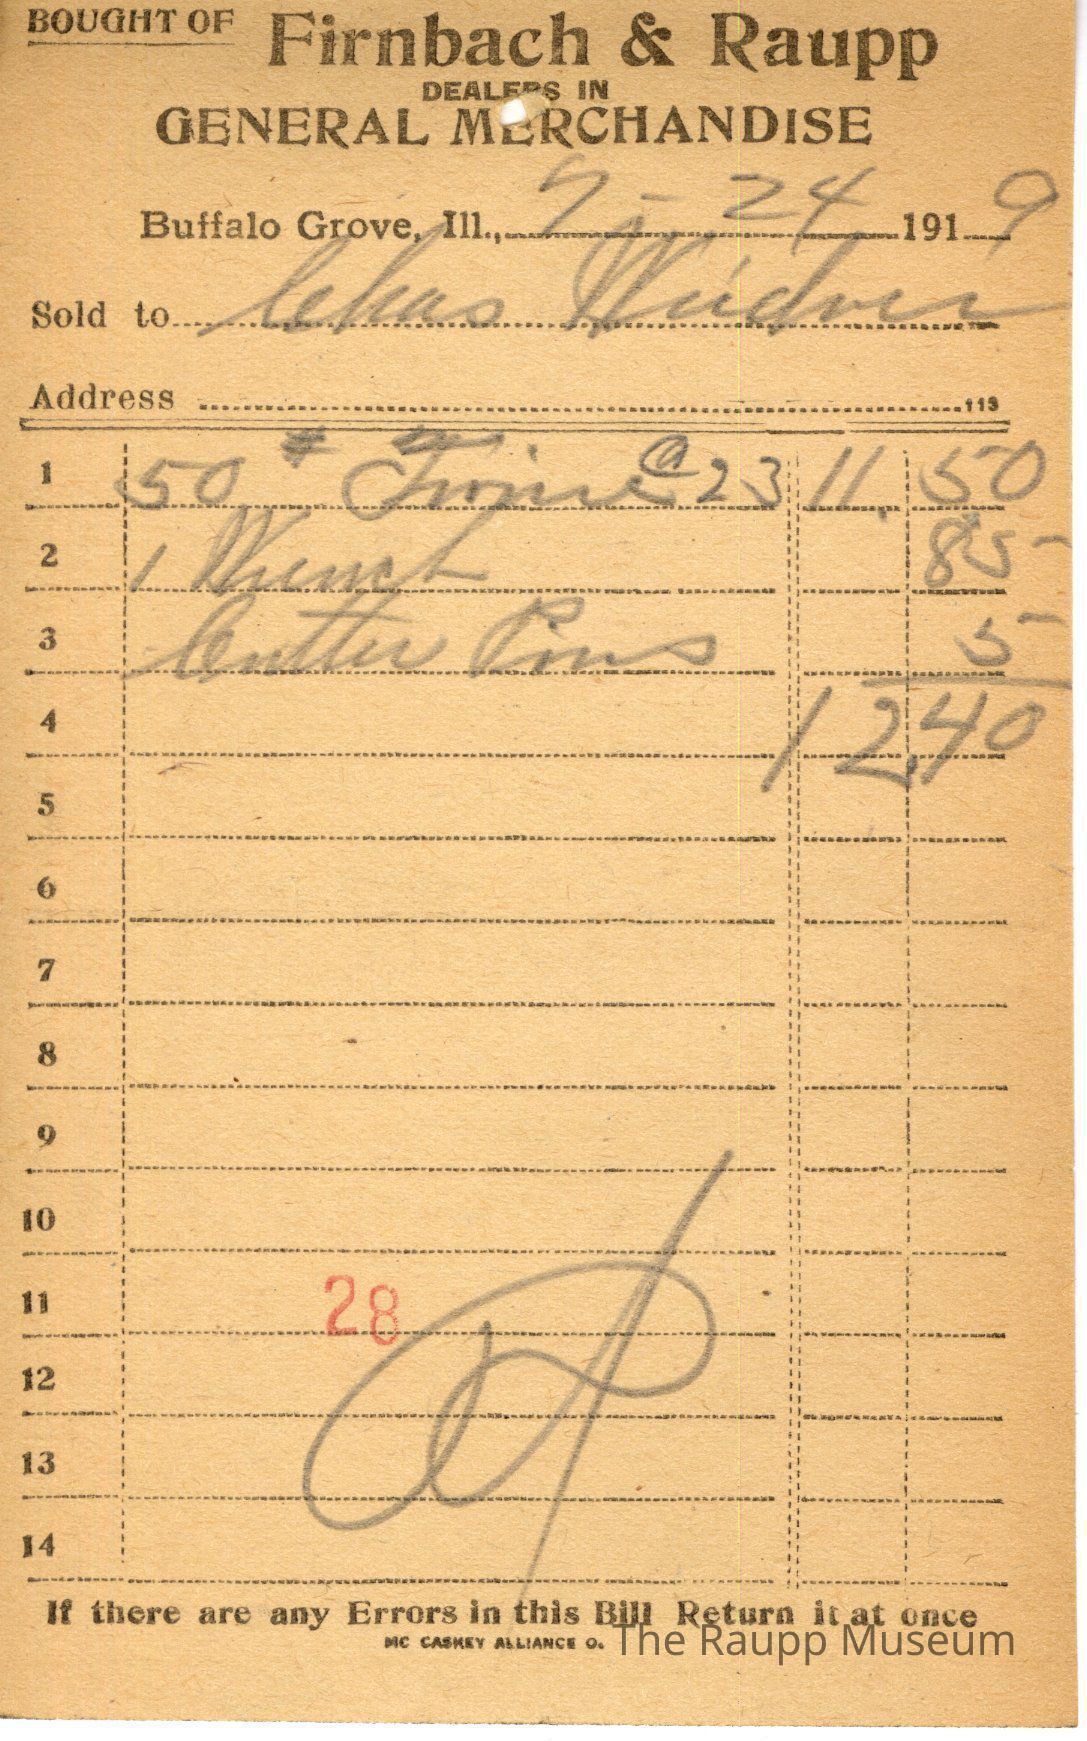 BOUGHT OF Firnbach & Raupp
DEALERS IN
GENERAL MERCHANDISE
Buffalo Grove, Ill., 7-24 1919
Sold to Chas
Address 113
1 50 # Twine @ 23 11.50
2 1 Wrench 85
3 Cutter Pins 5
4 12.40
5
6
7
8
9
10
11 28
12
13
14
If there are any Errors in this Bill Return it at once
MC CASKEY ALLIANCE O.
The Raupp Museum